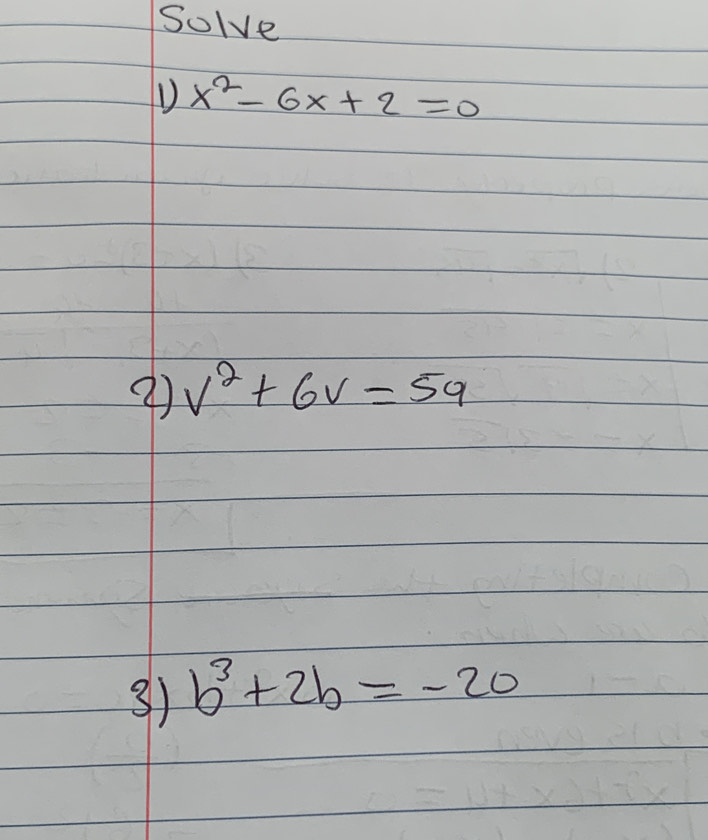 Solve
1) x² - 6x + 2 = 0
2) v² + 6v = 59
3) b³ + 2b = -20